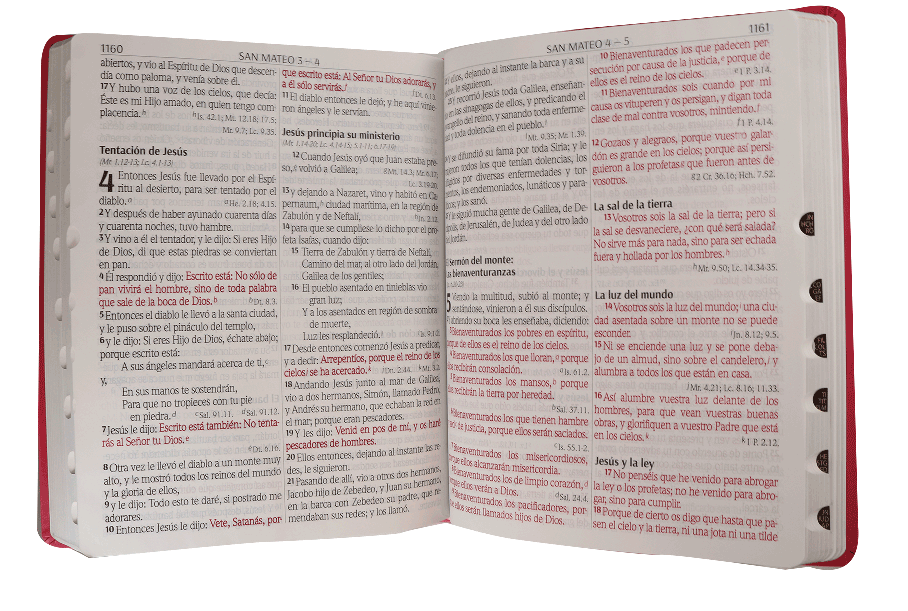 1160
SAN MATEO 3 – 4
abiertos, y vio al Espíritu de Dios que descen-
día como paloma, y venía sobre él.
17 Y hubo una voz de los cielos, que decía:
Éste es mi Hijo amado, en quien tengo com-
placencia. h
h Is. 42.1; Mt. 12.18; 17.5;
Mr. 9.7; Lc. 9.35.
Tentación de Jesús
(Mr. 1.12-13; Lc. 4.1-13)
4 Entonces Jesús fue llevado por el Espí-
ritu al desierto, para ser tentado por el
diablo. a
a He. 2.18; 4.15.
2 Y después de haber ayunado cuarenta días
y cuarenta noches, tuvo hambre.
3 Y vino a él el tentador, y le dijo: Si eres Hijo
de Dios, di que estas piedras se conviertan
en pan.
4 Él respondió y dijo: Escrito está: No sólo de
pan vivirá el hombre, sino de toda palabra
que sale de la boca de Dios. b
b Dt. 8.3.
5 Entonces el diablo le llevó a la santa ciudad,
y le puso sobre el pináculo del templo,
6 y le dijo: Si eres Hijo de Dios, échate abajo;
porque escrito está:
A sus ángeles mandará acerca de ti, c
y,
En sus manos te sostendrán,
Para que no tropieces con tu pie
en piedra. d
c Sal. 91.11. d Sal. 91.12.
7 Jesús le dijo: Escrito está también: No tenta-
rás al Señor tu Dios. e
e Dt. 6.16.
8 Otra vez le llevó el diablo a un monte muy
alto, y le mostró todos los reinos del mundo
y la gloria de ellos,
9 y le dijo: Todo esto te daré, si postrado me
adorares.
10 Entonces Jesús le dijo: Vete, Satanás, por-
que escrito está: Al Señor tu Dios adorarás, y
a él sólo servirás. f
f Dt. 6.13.
11 El diablo entonces le dejó; y he aquí vinie-
ron ángeles y le servían.
Jesús principia su ministerio
(Mr. 1.14-20; Lc. 4.14-15; 5.1-11; 6.17-19)
12 Cuando Jesús oyó que Juan estaba pre-
so, g volvió a Galilea;
g Mt. 14.3; Mr. 6.17;
Lc. 3.19-20.
13 y dejando a Nazaret, vino y habitó en Ca-
pernaum, h ciudad marítima, en la región de
Zabulón y de Neftalí,
h Jn. 2.12.
14 para que se cumpliese lo dicho por el pro-
feta Isaías, cuando dijo:
15 Tierra de Zabulón y tierra de Neftalí,
Camino del mar, al otro lado del Jordán,
Galilea de los gentiles;
16 El pueblo asentado en tinieblas vio
gran luz;
Y a los asentados en región de sombra
de muerte,
Luz les resplandeció. i
i Is. 9.1-2.
17 Desde entonces comenzó Jesús a predicar,
y a decir: Arrepentíos, porque el reino de los
cielos j se ha acercado. k
j Dn. 2.44. k Mt. 3.2.
18 Andando Jesús junto al mar de Galilea,
vio a dos hermanos, Simón, llamado Pedro,
y Andrés su hermano, que echaban la red en
el mar; porque eran pescadores.
19 Y les dijo: Venid en pos de mí, y os haré
pescadores de hombres.
20 Ellos entonces, dejando al instante las re-
des, le siguieron.
21 Pasando de allí, vio a otros dos hermanos,
Jacobo hijo de Zebedeo, y Juan su hermano,
en la barca con Zebedeo su padre, que re-
mendaban sus redes; y los llamó.
SAN MATEO 4 – 5
1161
ellos, dejando al instante la barca y a su
le siguieron.
recorrió Jesús toda Galilea, enseñan-
las sinagogas de ellos, y predicando el
del reino, y sanando toda enferme-
y toda dolencia en el pueblo. l
Mt. 9.35; Mr. 1.39.
se difundió su fama por toda Siria; y le
todos los que tenían dolencias, los
por diversas enfermedades y tor-
los endemoniados, lunáticos y para-
y los sanó.
le siguió mucha gente de Galilea, de De-
de Jerusalén, de Judea y del otro lado
Jordán.
El sermón del monte:
Las bienaventuranzas
5 Viendo la multitud, subió al monte; y
sentándose, vinieron a él sus discípulos.
abriendo su boca les enseñaba, diciendo:
Bienaventurados los pobres en espíritu,
porque de ellos es el reino de los cielos.
Bienaventurados los que lloran, a porque
recibirán consolación.
a Is. 61.2.
Bienaventurados los mansos, b porque
recibirán la tierra por heredad.
b Sal. 37.11.
Bienaventurados los que tienen hambre
de justicia, porque ellos serán saciados.
Is. 55.1-2.
7 Bienaventurados los misericordiosos,
porque ellos alcanzarán misericordia.
Bienaventurados los de limpio corazón, d
porque ellos verán a Dios.
d Sal. 24.4.
Bienaventurados los pacificadores, por-
que ellos serán llamados hijos de Dios.
10 Bienaventurados los que padecen per-
secución por causa de la justicia, e porque de
ellos es el reino de los cielos.
e 1 P. 3.14.
11 Bienaventurados sois cuando por mi
causa os vituperen y os persigan, y digan toda
clase de mal contra vosotros, mintiendo. f
f 1 P. 4.14.
12 Gozaos y alegraos, porque vuestro galar-
dón es grande en los cielos; porque así persi-
guieron a los profetas g que fueron antes de
vosotros.
g 2 Cr. 36.16; Hch. 7.52.
La sal de la tierra
13 Vosotros sois la sal de la tierra; pero si
la sal se desvaneciere, ¿con qué será salada?
No sirve más para nada, sino para ser echada
fuera y hollada por los hombres. h
h Mr. 9.50; Lc. 14.34-35.
La luz del mundo
14 Vosotros sois la luz del mundo; i una ciu-
dad asentada sobre un monte no se puede
esconder.
i Jn. 8.12; 9.5.
15 Ni se enciende una luz y se pone deba-
jo de un almud, sino sobre el candelero, j y
alumbra a todos los que están en casa.
j Mr. 4.21; Lc. 8.16; 11.33.
16 Así alumbre vuestra luz delante de los
hombres, para que vean vuestras buenas
obras, y glorifiquen a vuestro Padre que está
en los cielos. k
k 1 P. 2.12.
Jesús y la ley
17 No penséis que he venido para abrogar
la ley o los profetas; no he venido para abro-
gar, sino para cumplir.
18 Porque de cierto os digo que hasta que pa-
sen el cielo y la tierra, ni una jota ni una tilde